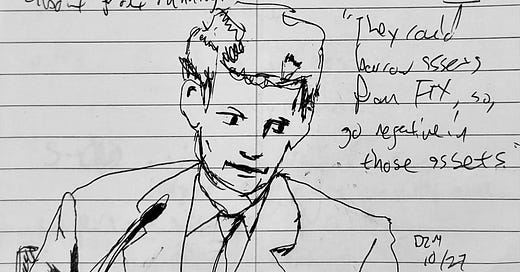 "They could
borrow assets
from FTX, so,
go negative in
those assets"
DZM
10/27